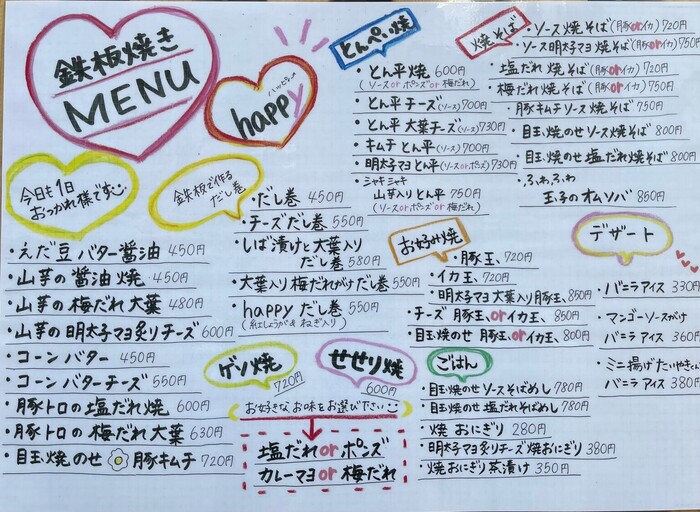 鉄板焼き
MENU
ハッピー
happy
今日も1日
おつかれ様です
・えだ豆バター醤油 450円
・山芋の醤油焼 450円
・山芋の梅だれ大葉 480円
・山芋の明太子マヨ炙りチーズ 600円
・コーンバター 450円
・コーンバターチーズ 550円
・豚トロの塩だれ焼 600円
・豚トロの梅だれ大葉 630円
・目玉焼のせ 豚キムチ 720円
鉄板で作る
だし巻
・だし巻 450円
・チーズだし巻 550円
・しば漬けと大葉入り
だし巻 580円
・大葉入り梅だれがけだし巻 550円
・happyだし巻 550円
(紅しょうが&ねぎ入り)
ゲソ焼
720円
せせり焼
600円
お好きなお味をお選び下さい
塩だれorポンズ
カレーマヨor梅だれ
とんぺい焼
・とん平焼 600円
(ソースorポンズor梅だれ)
・とん平チーズ(ソース)700円
・とん平大葉チーズ(ソース)730円
・キムチとん平(ソース)700円
・明太子マヨとん平(ソースorポンズ)730円
・シャキシャキ
山芋入りとん平 750円
(ソースorポンズor梅だれ)
お好み焼
・豚玉、720円
・イカ玉、720円
・明太子マヨ大葉入り豚玉、850円
・チーズ豚玉、orイカ玉、850円
・目玉焼のせ豚玉、orイカ玉、800円
ごはん
・目玉焼のせソースそばめし 780円
・目玉焼のせ塩だれそばめし 780円
・焼おにぎり 280円
・明太子マヨ炙りチーズ焼おにぎり 380円
・焼おにぎり茶漬け 350円
焼そば
・ソース焼そば(豚orイカ)720円
・ソース明太子マヨ焼そば(豚orイカ)750円
・塩だれ焼そば(豚orイカ)720円
・梅だれ焼そば(豚orイカ)750円
・豚キムチソース焼そば 750円
・目玉焼のせソース焼そば 800円
・目玉焼のせ塩だれ焼そば 800円
・ふわふわ
玉子のオムソバ 850円
デザート
・バニラアイス 330円
・マンゴーソースがけ
バニラアイス 360円
・ミニ揚げたいやき&
バニラアイス 380円